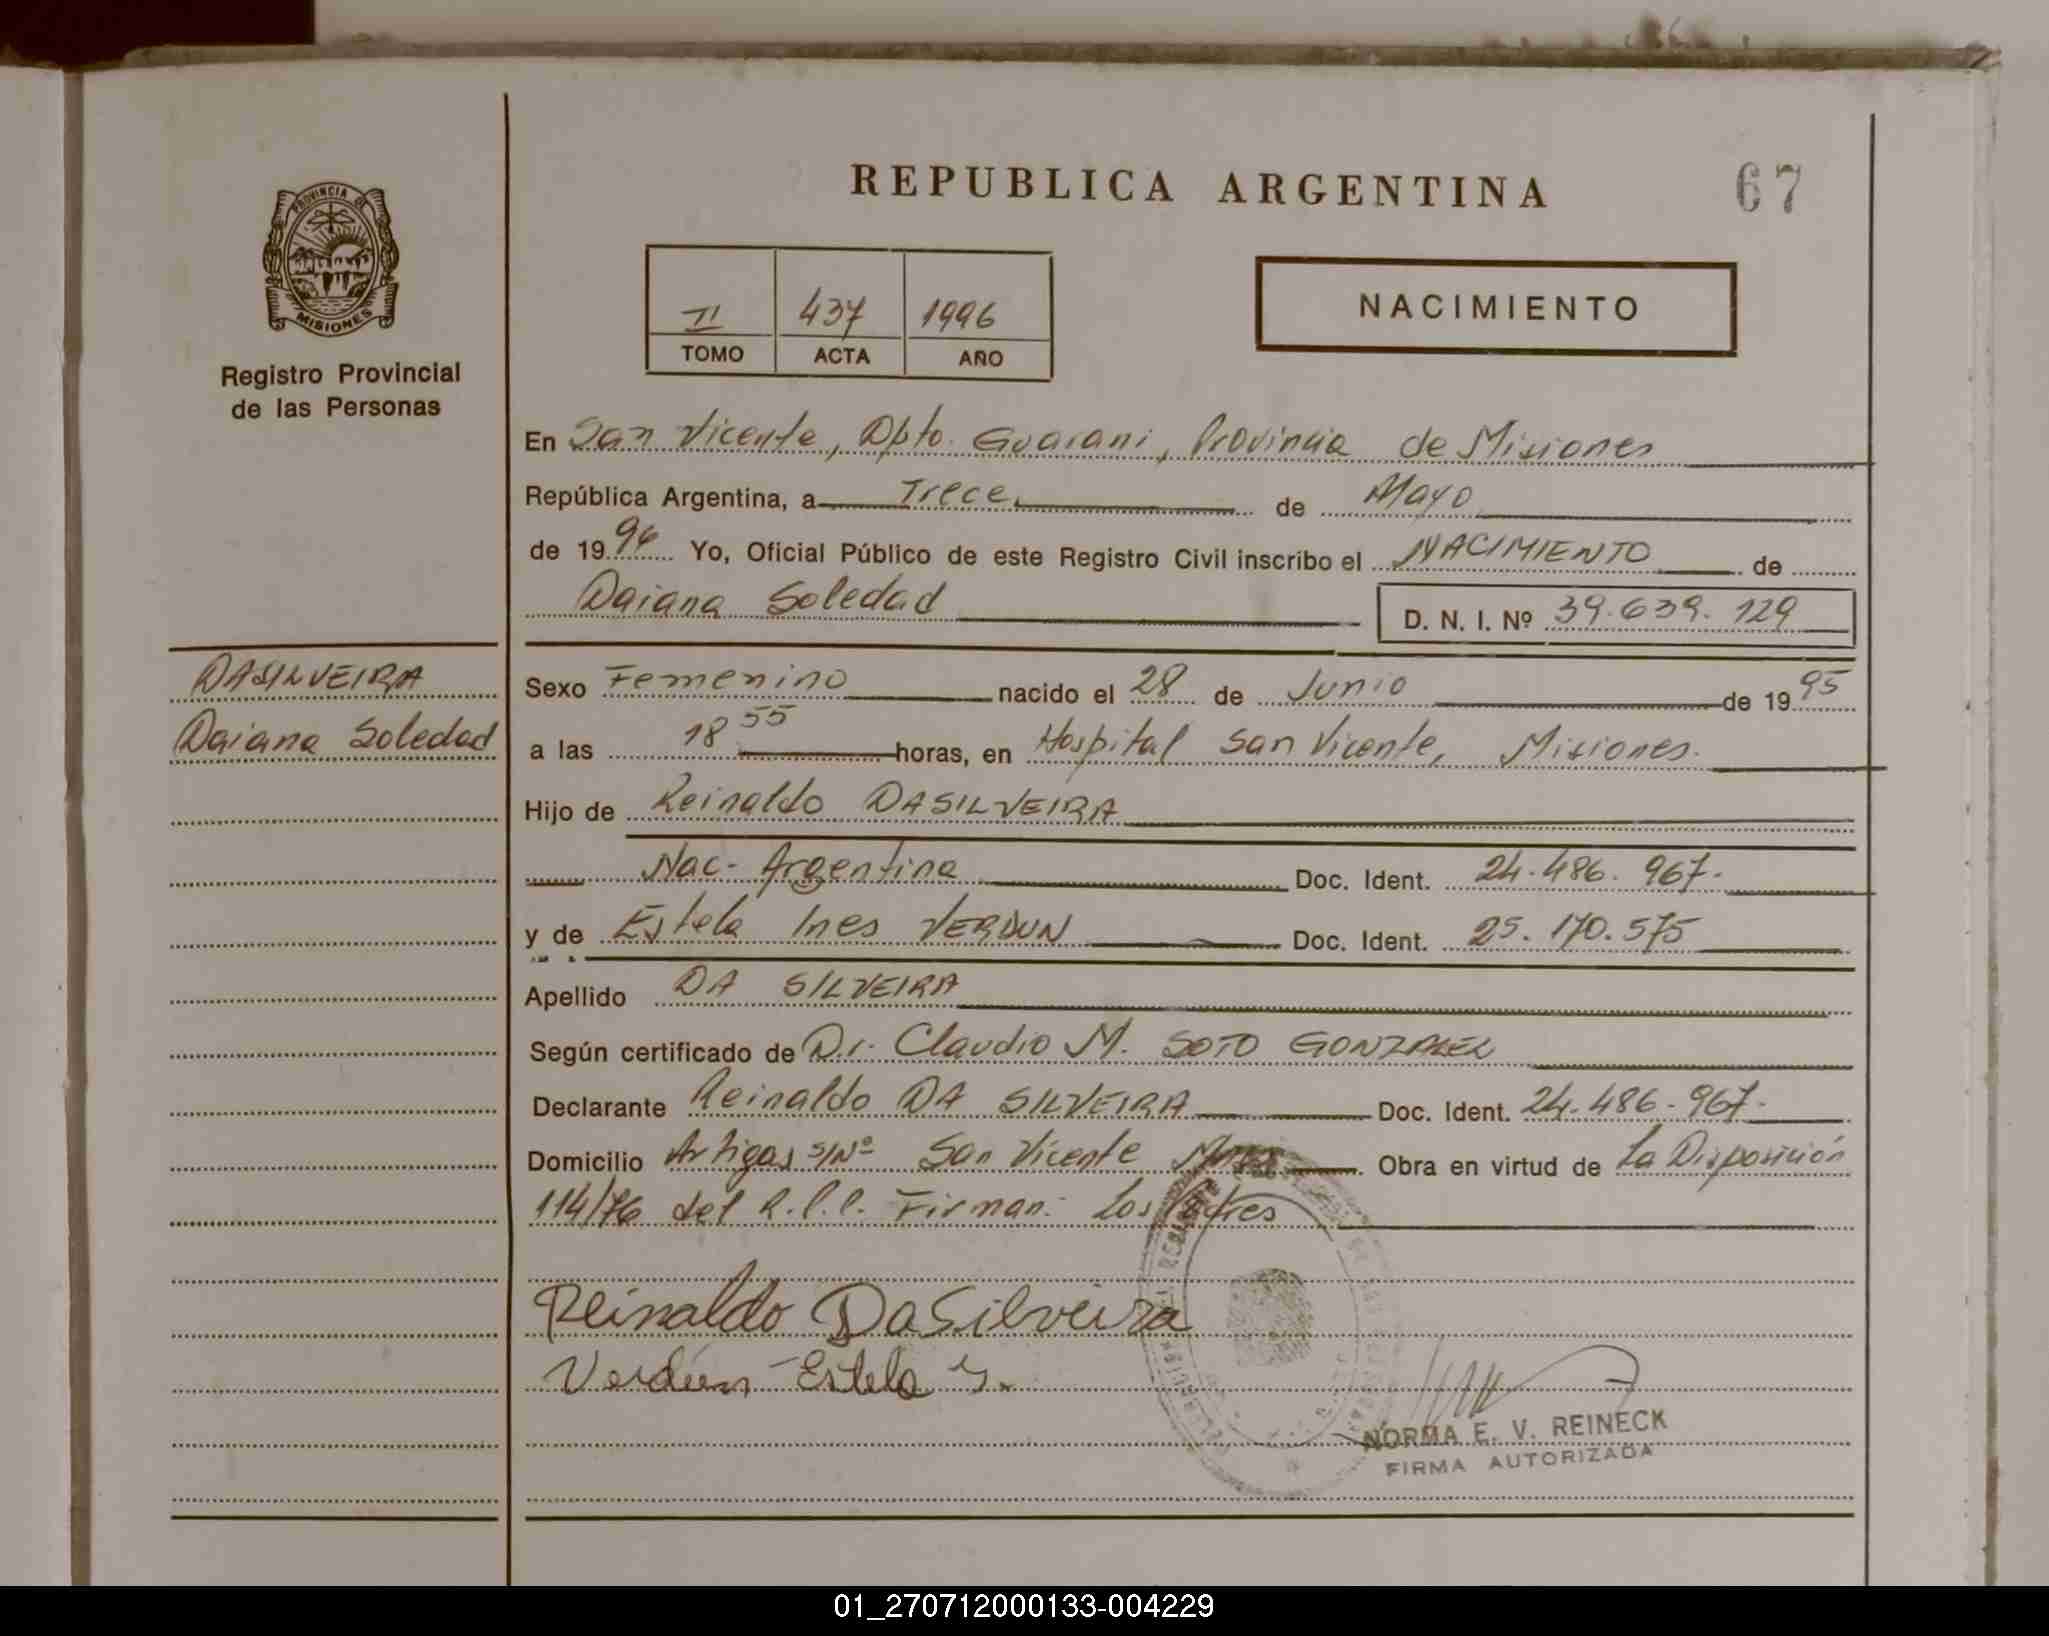 REPUBLICA ARGENTINA
67
PROVINCIA DE
MISIONES
Registro Provincial
de las Personas
II 437 1996
TOMO ACTA AÑO
NACIMIENTO
En San Vicente, Dpto. Guarani, Provincia de Misiones
República Argentina, a Trece de Mayo
de 1996 Yo, Oficial Público de este Registro Civil inscribo el NACIMIENTO de
Daiana Soledad D. N. I. Nº 39.639.129
DASILVEIRA
Daiana Soledad
Sexo Femenino nacido el 28 de Junio de 1995
a las 18 55 horas, en Hospital San Vicente, Misiones.
Hijo de Reinaldo DASILVEIRA
Nac- Argentina Doc. Ident. 24.486.967.
y de Estela Ines VERDUN Doc. Ident. 25.170.575
Apellido DA SILVEIRA
Según certificado de Dr. Claudio M. SOTO GONZALEZ
Declarante Reinaldo DA SILVEIRA Doc. Ident. 24.486.967.
Domicilio Artigas S/Nº San Vicente Mnes Obra en virtud de La Disposición
114/76 del R.P.P. Firman: Los Padres
Reinaldo DaSilveira
Verdún Estela I.
NORMA E. V. REINECK
FIRMA AUTORIZADA
01_270712000133-004229